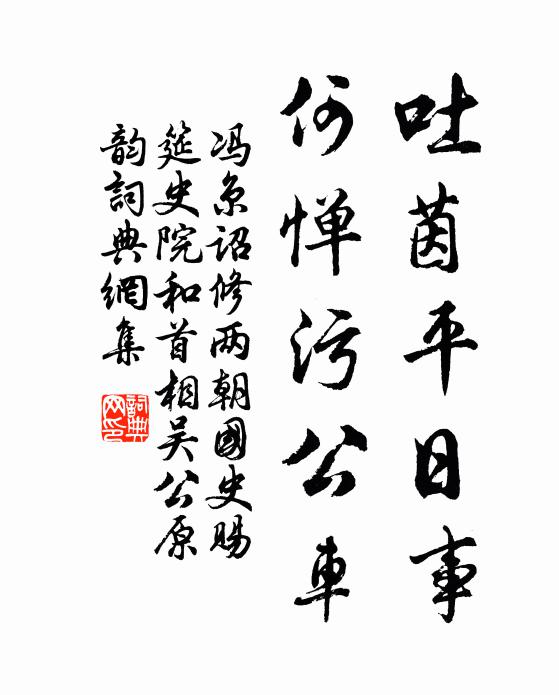 吐茵平日事
何惮污公車
冯京詔修两朝國史賜
筵史院和首相吴公原
韵詞典網集
詞典
网印